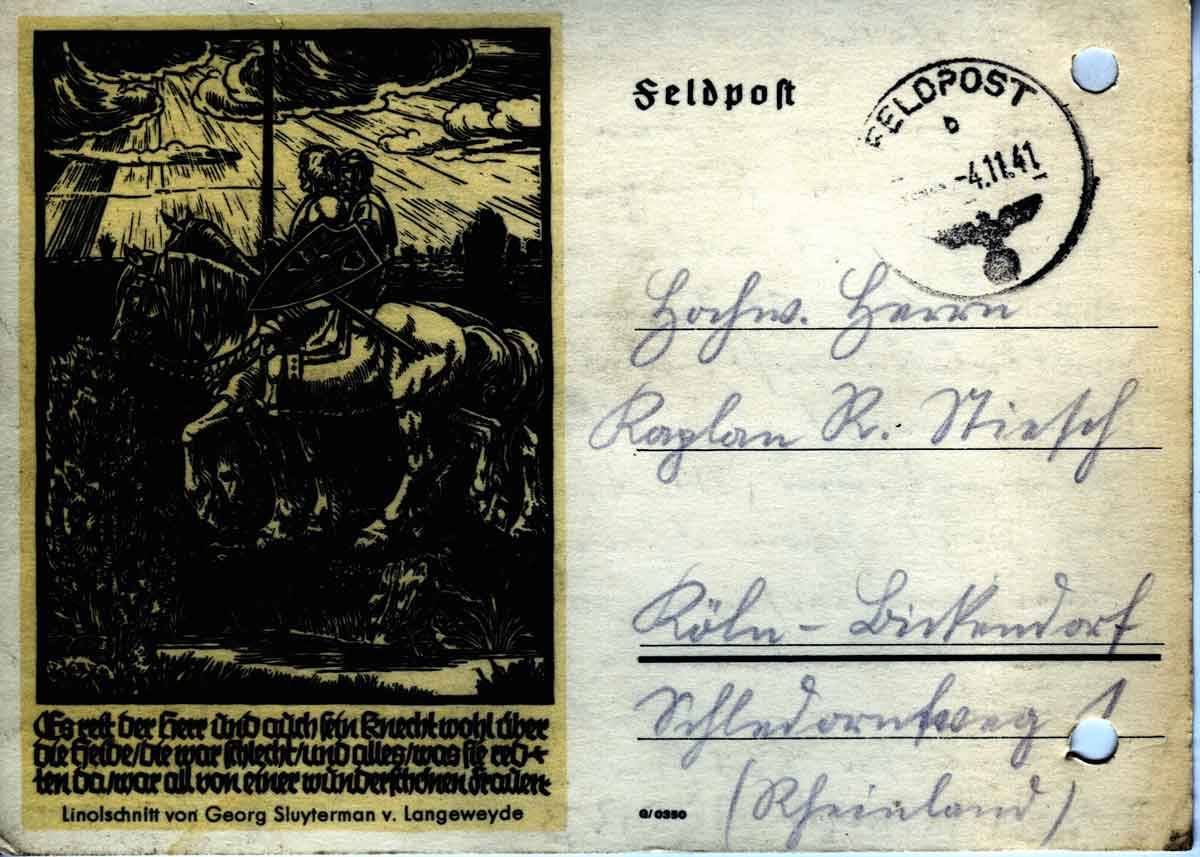 Es reit der Herr und auch sein Knecht wohl über
die Heide/die war schlecht/und alles/was sie red-
ten da/war all von einer wunderschönen Frauen
Linolschnitt von Georg Sluyterman v. Langeweyde
Feldpost
FELDPOST
b
-4.11.41
Hochw. Herrn
Kaplan R. Stiesch
Köln - Bickendorf
Schledornsweg 1
(Rheinland)
G/0350